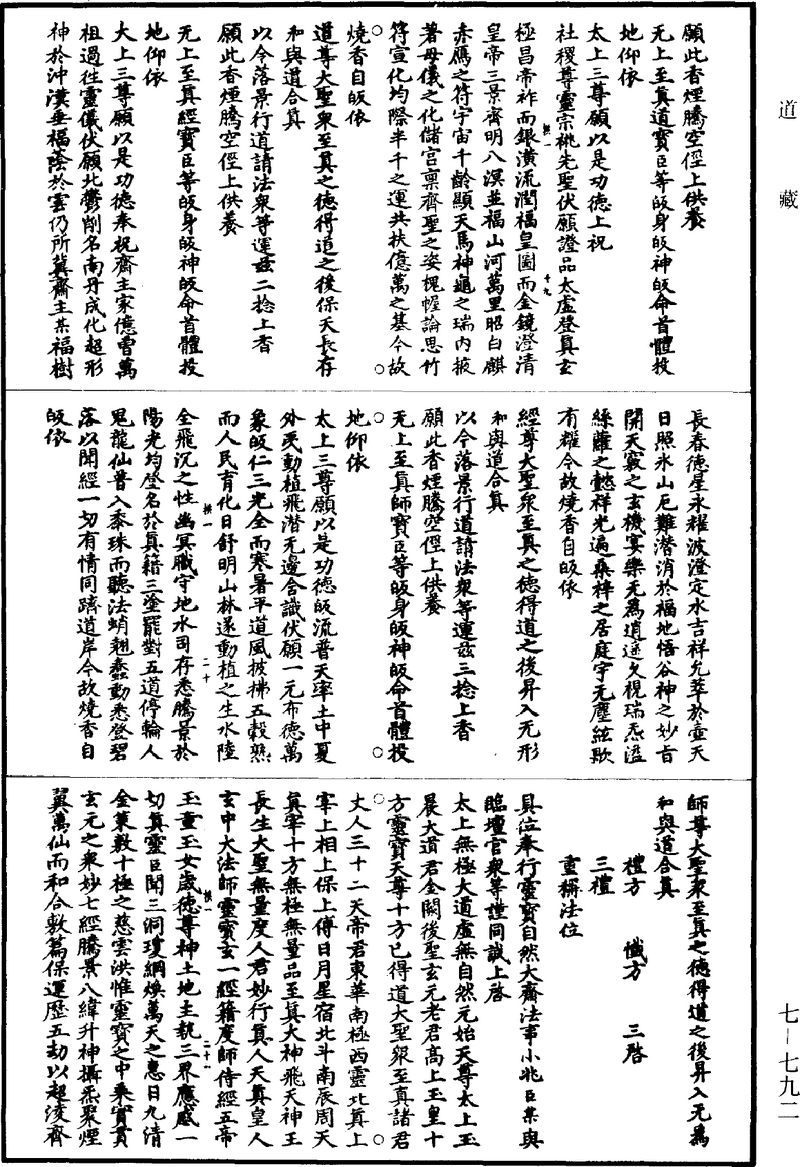 道藏
願此香煙騰空徑上供養
无上至真道寶臣等皈身皈神皈命首體投
地仰依
太上三尊願以是功德上祝
社稷尊靈宗祧先聖伏願證品太虛登真玄
極昌帝祚而銀潢流潤福皇圖而金鏡澄清
皇帝三景齊明八溟並福山河萬里昭白麟
赤鴈之符宇宙千齡顯天馬神龜之瑞內掖
著母儀之化儲宮稟齊聖之姿槐幄論思竹
符宣化均際半千之運共扶億萬之基今故
燒香自皈依
道尊大聖衆至真之德得道之後保天長存
和與道合真
以今落景行道請法衆等運茲二捻上香
願此香煙騰空徑上供養
无上至真經寶臣等皈身皈神皈命首體投
地仰依
太上三尊願以是功德奉祝齋主家億曾萬
祖過往靈儀伏願北酆削名南丹成化超形
神於沖漠垂福蔭於雲仍所冀齋主某福樹
長春德星永耀波澄定水吉祥允萃於壺天
日照氷山厄難潛消於福地悟谷神之妙旨
開天竅之玄機宴樂无爲逍遙久視瑞炁溢
絲蘿之懿祥光遍桑梓之居庭宇无塵絃歌
有耀今故燒香自皈依
經尊大聖衆至真之德得道之後昇入无形
和與道合真
以今落景行道請法衆等運茲三捻上香
願此香煙騰空徑上供養
无上至真師寶臣等皈身皈神皈命首體投
地仰依
太上三尊願以是功德皈流普天率土中夏
外夷動植飛潛无邊含識伏願一元布德萬
象皈仁三光全而寒暑平道風披拂五穀熟
而人民育化日舒明山林遂動植之生水陸
全飛沉之性幽冥職守地水司存悉騰景於
陽光均登名於真籍三塗罷對五道停輪人
鬼龍仙普入黍珠而聽法蛸翹蠢動悉登碧
落以聞經一切有情同躋道岸今故燒香自
皈依
師尊大聖衆至真之德得道之後昇入无爲
和與道合真
禮方 懺方 三啓
三禮
重稱法位
具位奉行靈寶自然大齋法事小兆臣某與
臨壇官衆等謹同誠上啓
太上無極大道虛無自然元始天尊太上玉
晨大道君金闕後聖玄元老君高上玉皇十
方靈寶天尊十方已得道大聖衆至真諸君
丈人三十二天帝君東華南極西靈北真上
宰上相上保上傅日月星宿北斗南辰周天
真宰十方無極無量品至真大神飛天神王
長生大聖無量度人君妙行真人天真皇人
玄中大法師靈寶玄一經籍度師侍經五帝
玉童玉女歲德尊神土地主執三界應感一
切真靈臣聞三洞瓊綱煥萬天之惠日九清
金策敷十極之慈雲洪惟靈寶之中乘實貫
玄元之衆妙七經騰景八緯升神攝炁聚煙
翼萬仙而和合敷篇保運歷五劫以超淩齊
七–七九二